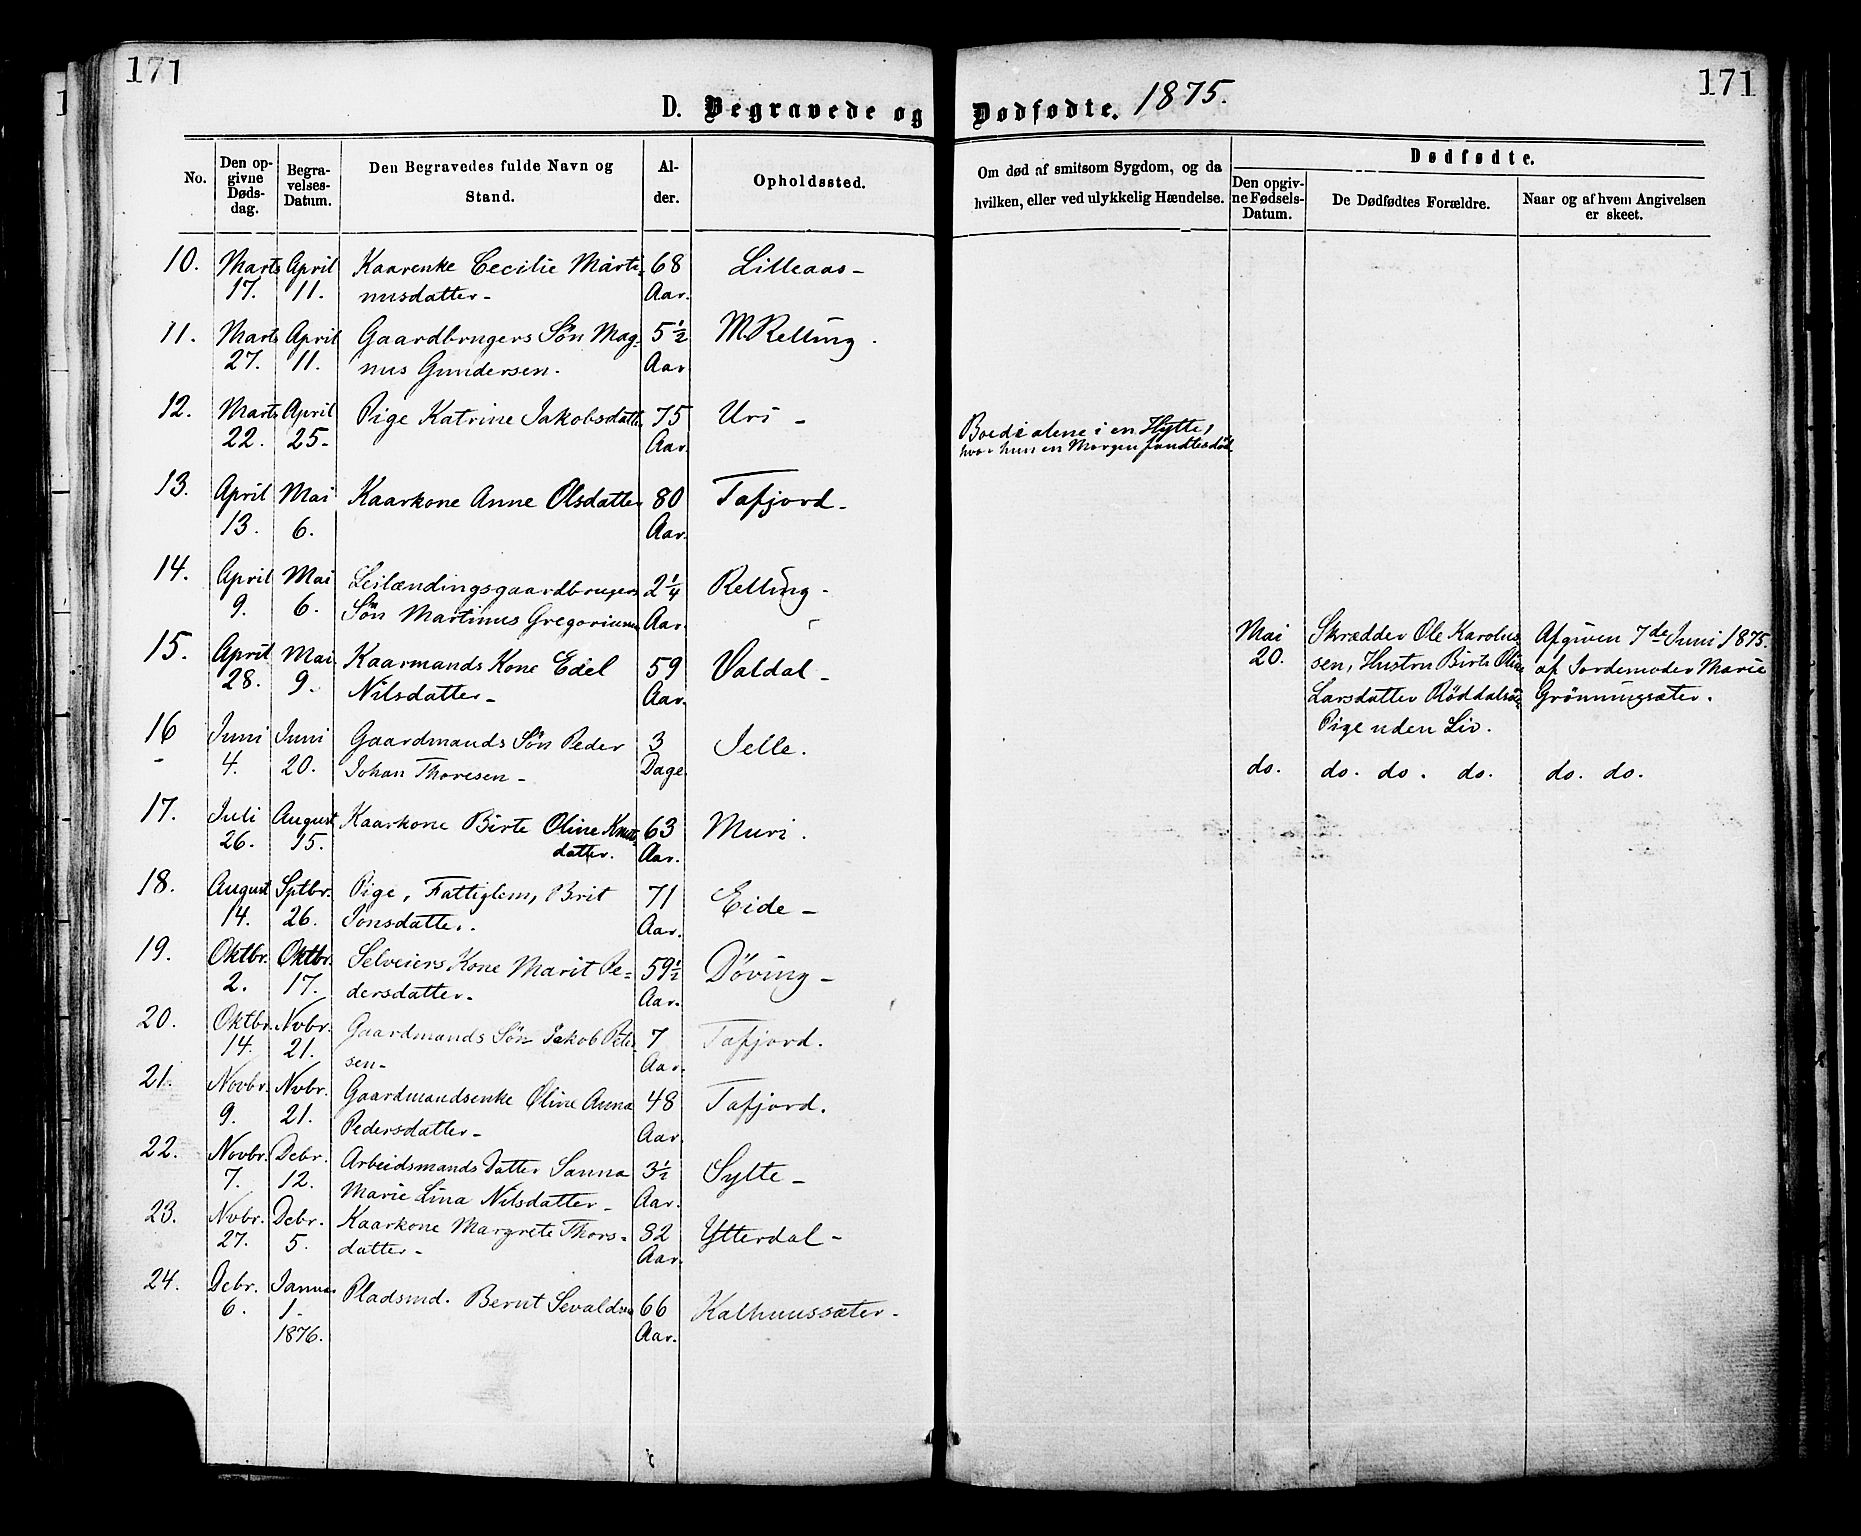 171
171
D. Begravede og Dødfødte. 1875.
No.
Den op-
givne
Døds-
dag.
Begra-
velses-
Datum.
Den Begravedes fulde Navn og
Stand.
Al-
der.
Opholdssted.
Om død af smitsom Sygdom, og da
hvilken, eller ved ulykkelig Hændelse.
Dødfødte.
Den opgiv-
ne Fødsels-
Datum.
De Dødfødtes Forældre.
Naar og af hvem Angivelsen
er skeet.
10. Marts April Kaarenke Cecilie Marti- 68 Lilleaas-
17. 11. nusdatter- Aar.
11. Marts April Gaardbrugers Søn Mag- 5½ M. Relling.
27. 11. nus Gundersen. Aar
12. Marts April Pige Katrine Jakobsdatter 75 Uri -
22. 25- Aar.
Boede alene i en Hytte,
hvor hun en Morgen fandtes død.
13. April Mai Kaarkone Anne Olsdatter 80 Tafjord-
13. 6. Aar.
14. April Mai Leilændingsgaardbrugers 2¼ Relling-
9. 6. Søn Martinus Gregoriussen Aar.
15. April Mai Kaarmands Kone Edel 59 Valdal-
28. 9. Nilsdatter- Aar.
Mai Skrædder Ole Karolus- Afgiven 7de Juni 1875.
20. sen, Hustru Birte Oline af Jordemoder Marie
Larsdatter Grønningsæter.
Pige uden Liv.
16 Juni Juni Gaardmands Søn Peder 3 Jelle.
- 4. 20. Johan Thoresen- Dage.
do. do. do. do. do. do.
17. Juli August Kaarkone Birte Oline Knuts- 63 Muri.
26. 15. datter. Aar.
18. August Sptbr. Pige, Fattiglem, Brit 71 Eide-
14. 26. Jonsdatter. Aar.
19. Oktbr. Oktbr. Selveiers Kone Marit Pe- 59½ Døving-
2. 17. dersdatter- Aar.
20. Oktbr. Nvbr. Gaardmands Søn Jakob Peter- 7 Tafjord.
14. 21. sen- Aar.
21. Novbr. Nvbr. Gaardmandsenke Oline Anna 48 Tafjord.
9. 21. Pedersdatter- Aar.
22. Novbr. Debr. Arbeidsmands Datter Sanna 3½ Sylte-
7. 12. Marie Lina Nilsdatter- Aar.
23. Nvbr. Debr. Kaarkone Margrete Thors- 82 Ytterdal-
27. 5. datter- Aar.
24. Debr. Januar Pladsmd. Bernt Sevaldsen 66 Kalhuussæter-
6. 1-
1876. Aar.